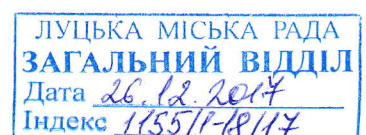 ЛУЦЬКА МІСЬКА РАДА
ЗАГАЛЬНИЙ ВІДДІЛ
Дата 26.12.2017
Індекс 1155/1-18/17